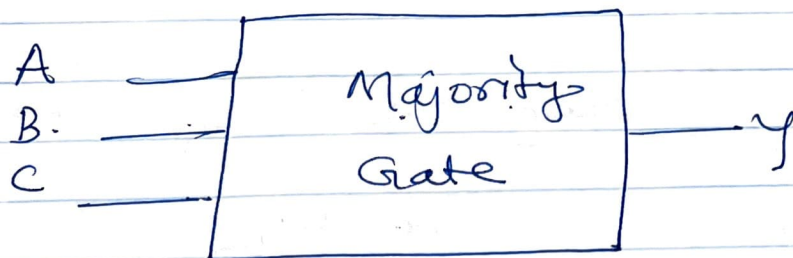 A
B.
Majority
C
Gate
y